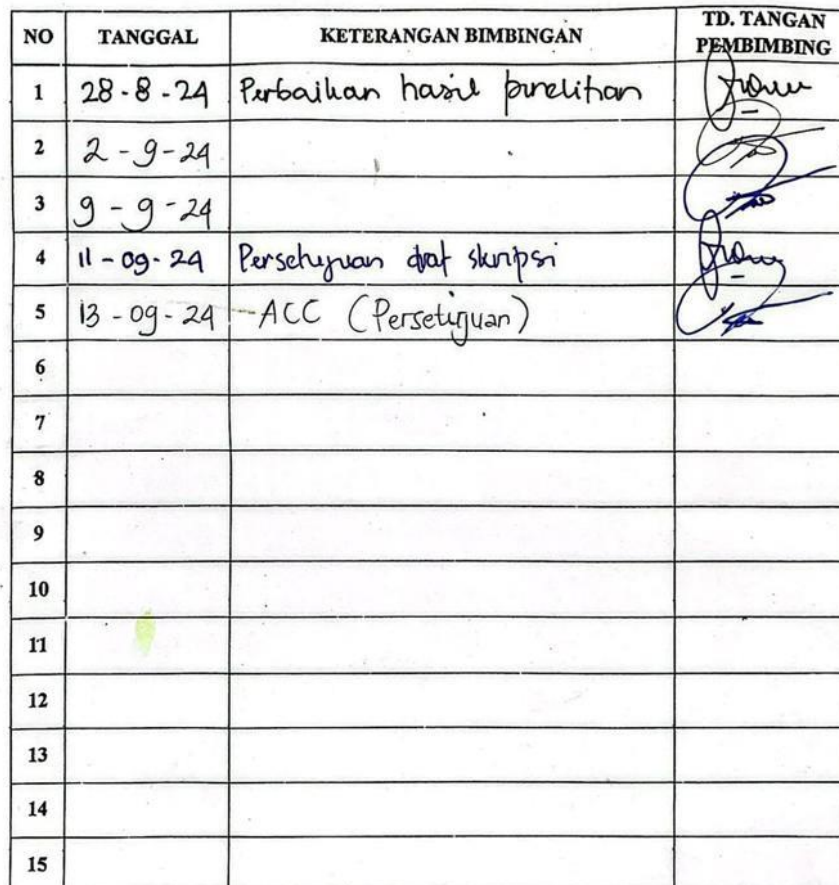 NO TANGGAL KETERANGAN BIMBINGAN TD. TANGAN PEMBIMBING
1 28-8-24 Perbaikan hasil penelitian
2 2-9-24
3 9-9-24
4 11-09-24 Persetujuan draf skripsi
5 13-09-24 ACC (Persetujuan)
6
7
8
9
10
11
12
13
14
15